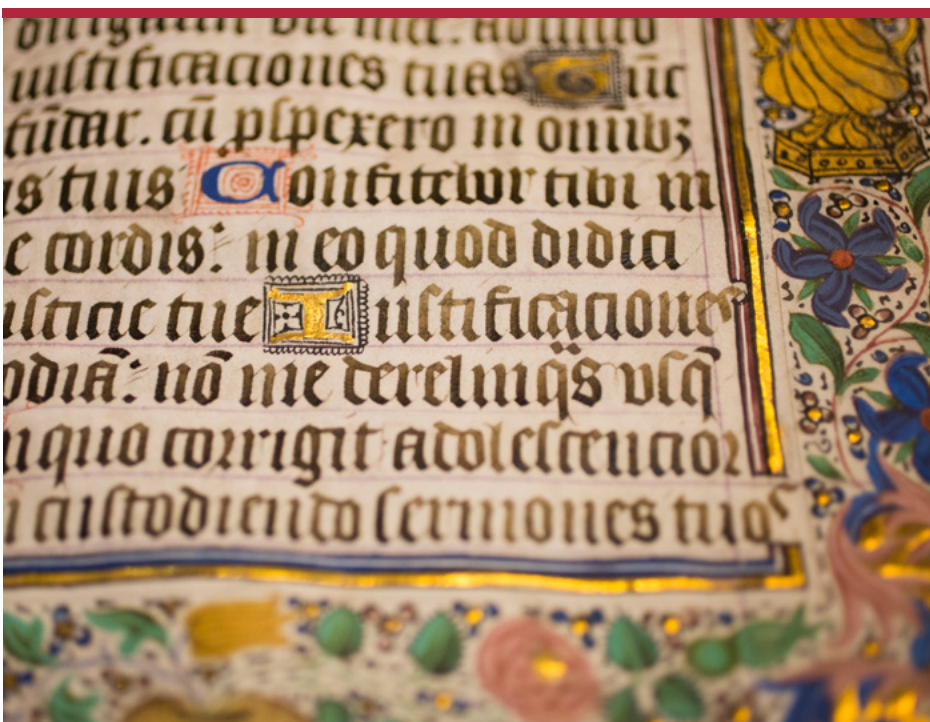 vie mee. ad custo
iustificaciones tuas Tūc
fūdar. cū pſpexero in omnibꝫ
is tuis Confitebor tibi in
e cordis: in eo quod didici
usticie tue Iustificaciones
odiā: nō me derelinq̈s vsq̄
n quo corrigit adolescencior
n custodiendo sermones tuos